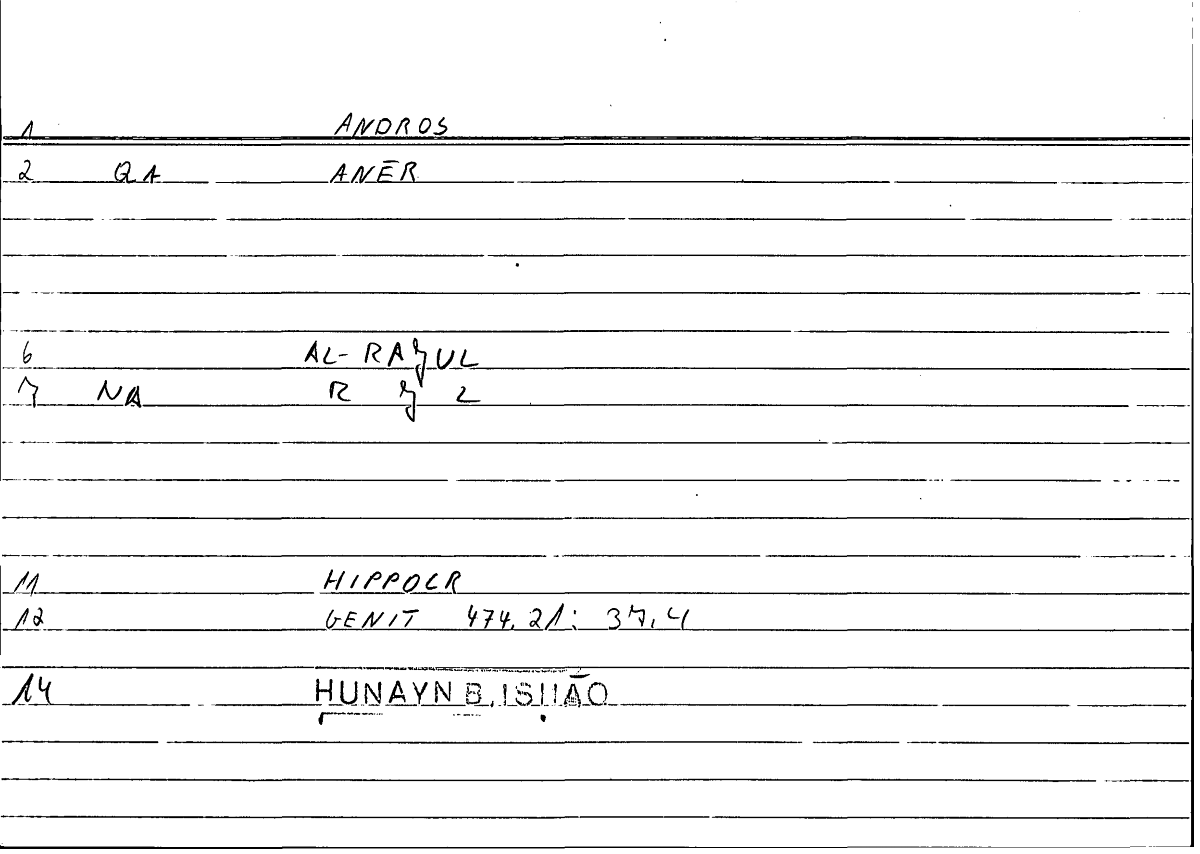 1 ANDROS
2 QA ANĒR
6 AL-RAǧUL
7 NA R ǧ L
11 HIPPOCR
12 GENIT 474.21: 37.4
14 HUNAYN B. ISḤĀQ